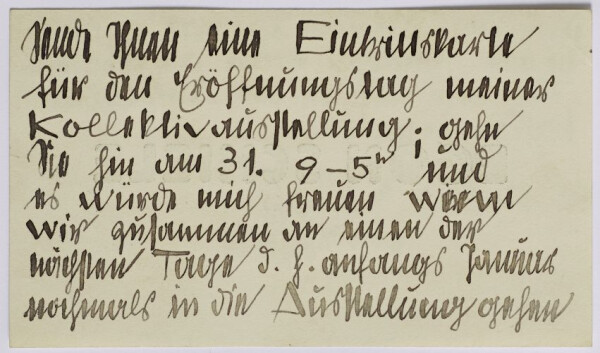 Sende Ihnen eine Eintrittskarte
für den Eröffnungstag meiner
Kollektivausstellung; gehn
Sie hin am 31. 9-5ʰ und
es würde mich freuen wenn
wir zusammen an einen der
nächsten Tage d. h. anfangs Januar
nochmals in die Ausstellung gehen